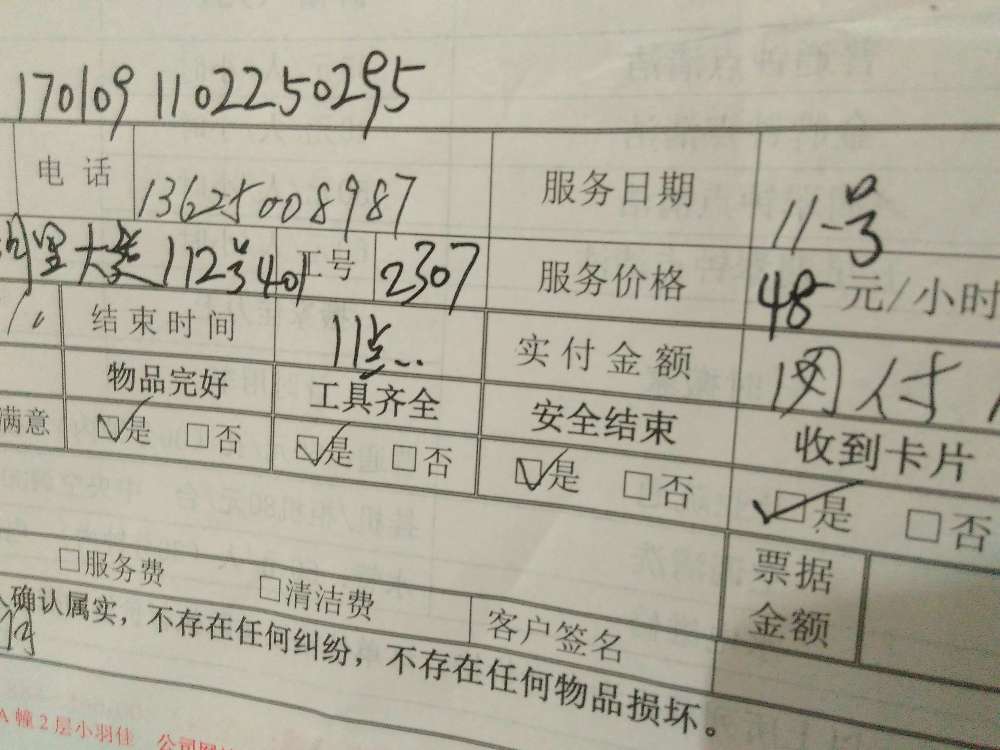 170109 1102250295
电话 13625008987 服务日期 11号
里大 112号401 工号 2307 服务价格 48元/小时
结束时间 11点 实付金额 网付
物品完好 工具齐全 安全结束 收到卡片
满意 ☑是 □否 ☑是 □否 ☑是 □否 ☑是 □否
□服务费 □清洁费 客户签名 票据金额
确认属实，不存在任何纠纷，不存在任何物品损坏。
A幢2层小羽佳 公司网